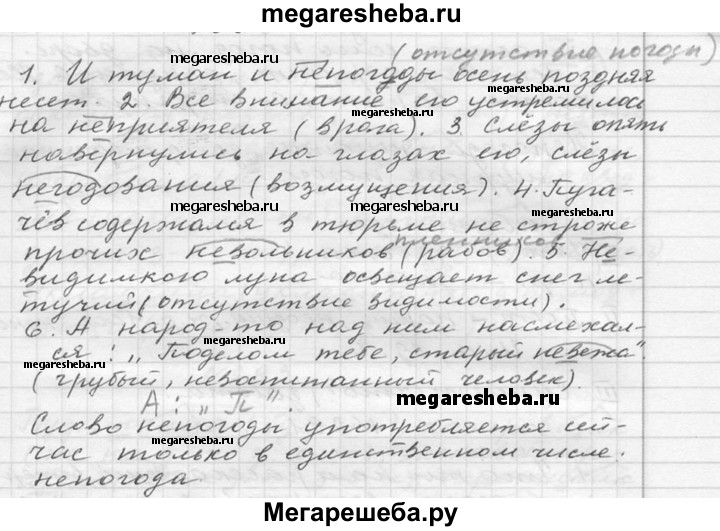 megaresheba.ru
(отсутствие погоды)
1. И туман и непогоды осень поздняя
несет. 2. Все внимание его устремилось
на неприятеля (врага). 3. Слёзы опять
навернулись на глазах его, слёзы
негодования (возмущения). 4. Пуга-
чёв содержался в тюрьме не строже
пленников
прочих невольников (рабов). 5. Не-
видимкою луна освещает снег ле-
тучий (отсутствие видимости).
6. А народ-то над ним насмехал-
ся: „Поделом тебе, старый невежа".
(грубый, невоспитанный человек).
А: „П".
Слово непогоды употребляется сей-
час только в единственном числе.
непогода
megaresheba.ru
megaresheba.ru
megaresheba.ru
megaresheba.ru
megaresheba.ru
megaresheba.ru
megaresheba.ru
megaresheba.ru
megaresheba.ru
Мегарешеба.ру